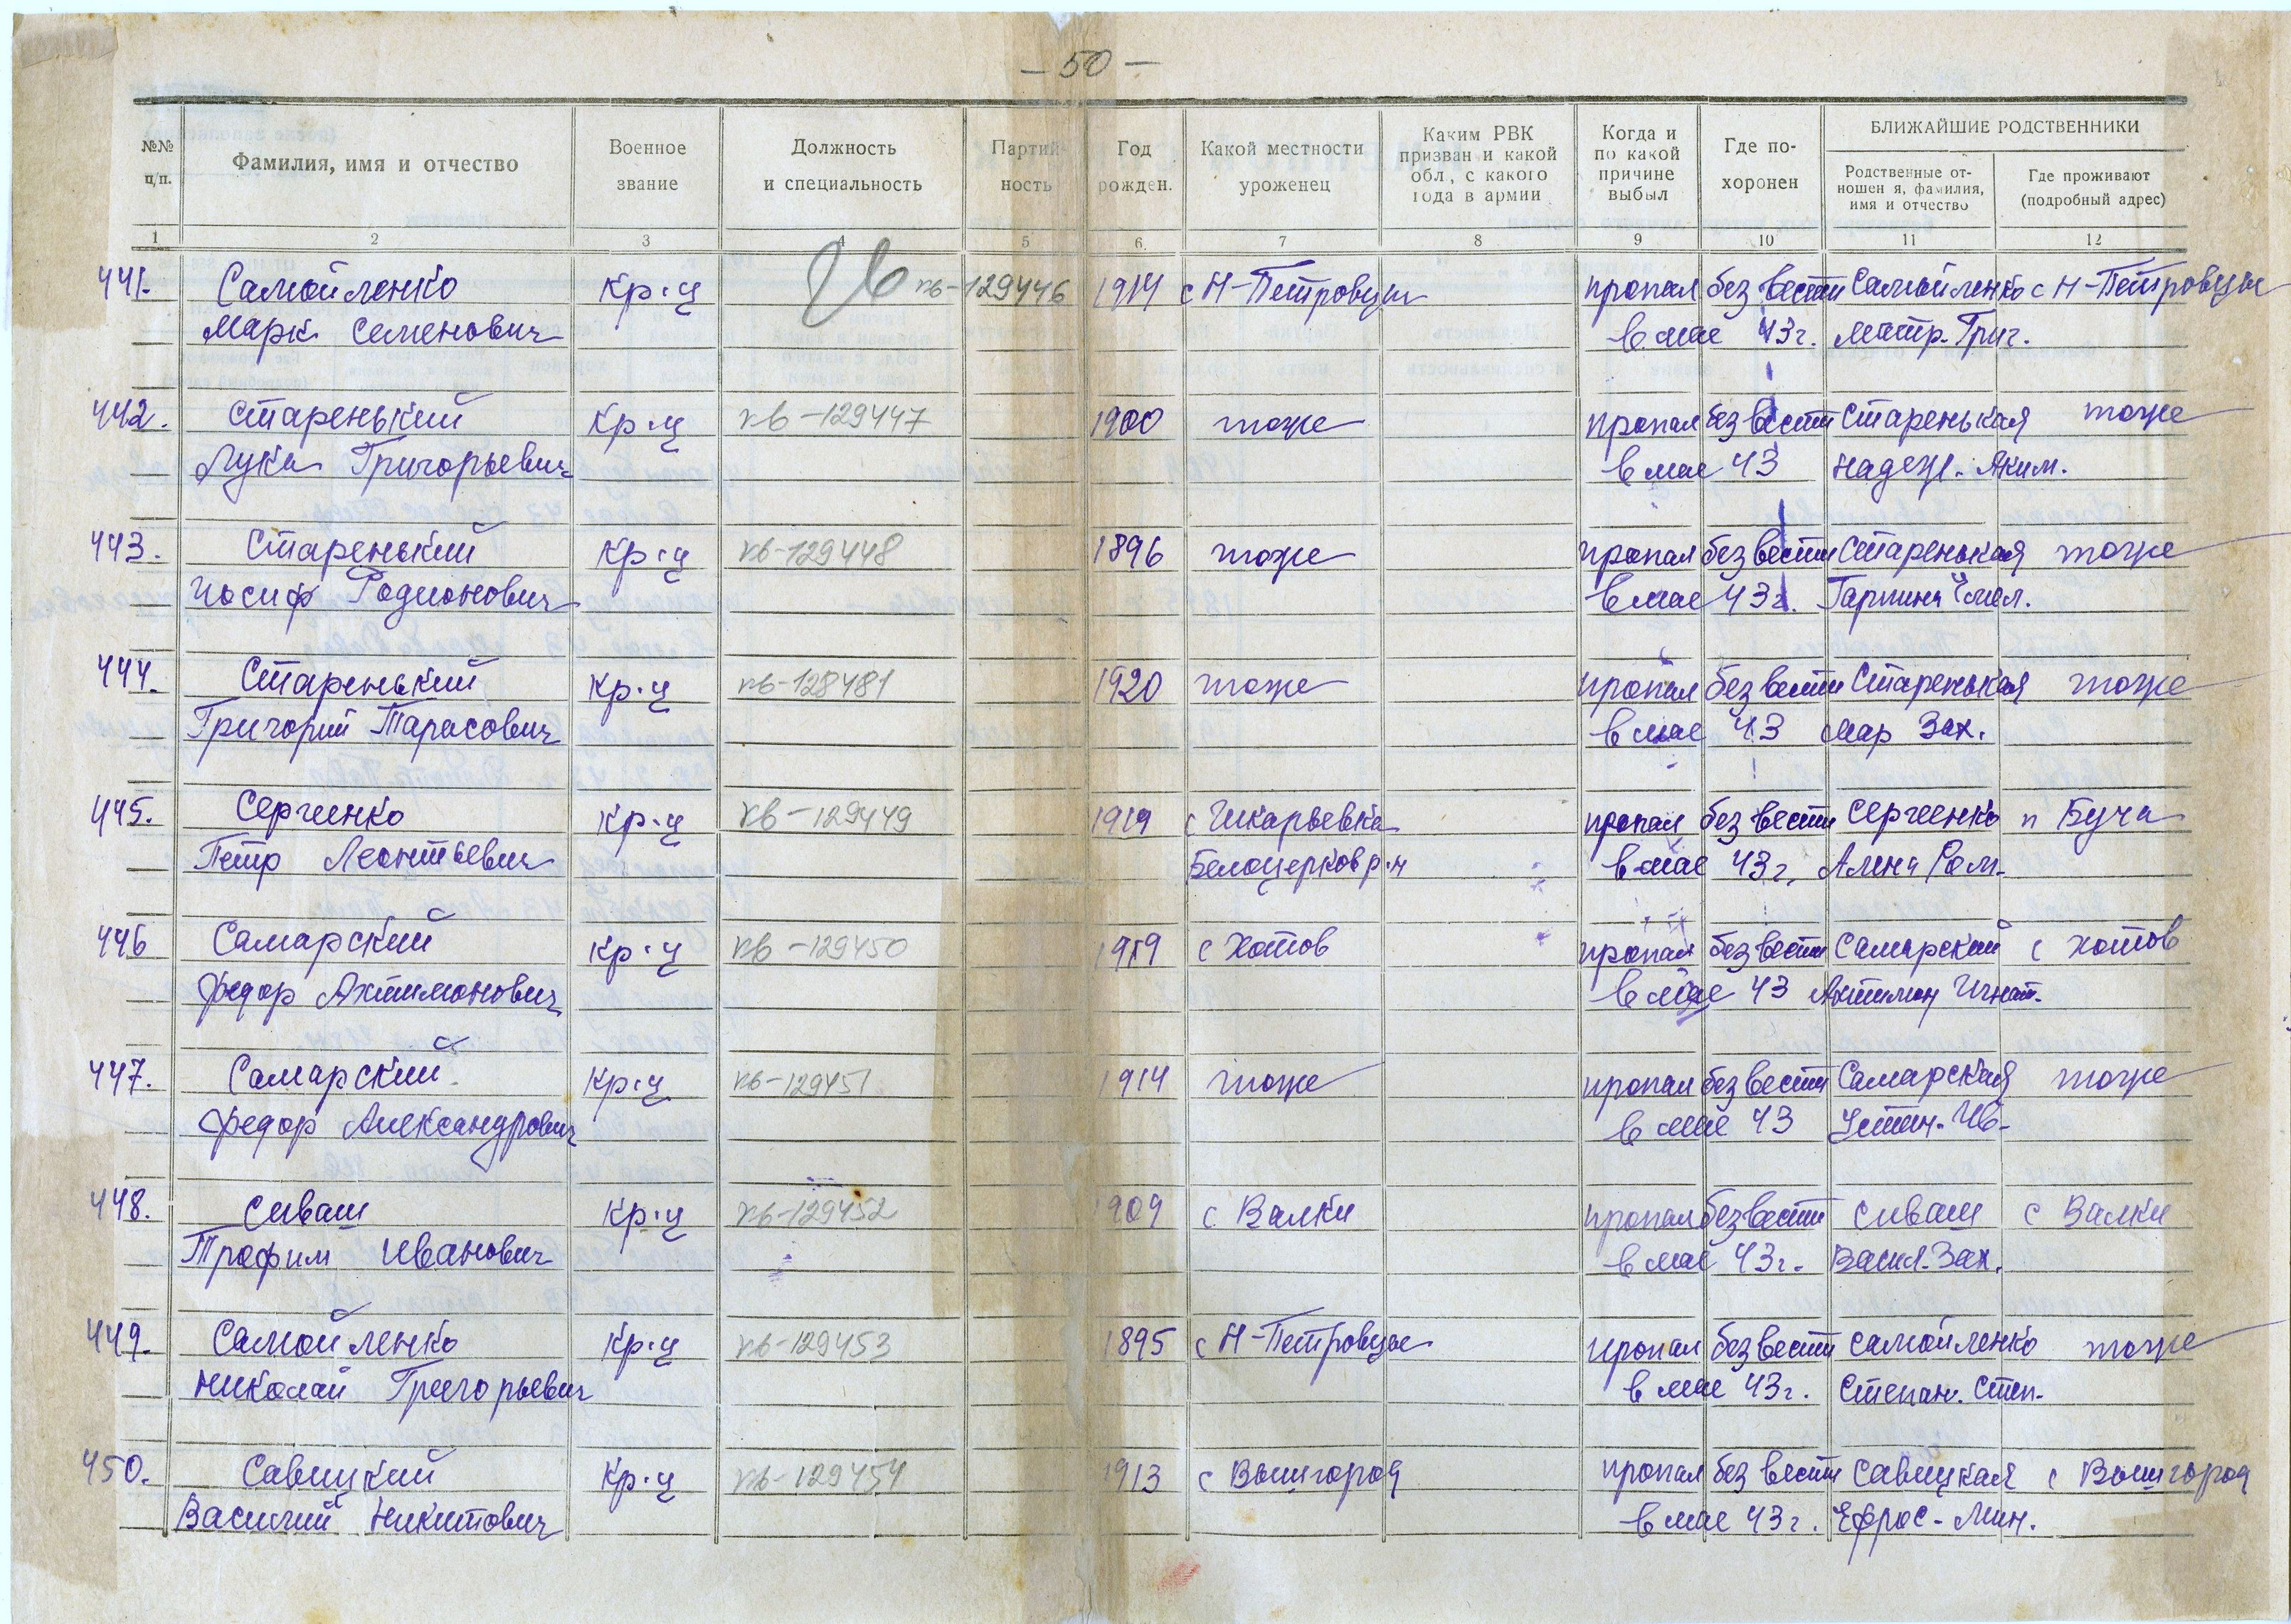 — 50 —
№№ п/п.
Фамилия, имя и отчество
Военное звание
Должность и специальность
Партийность
Год рожден.
Какой местности уроженец
Каким РВК призван и какой обл., с какого года в армии
Когда и по какой причине выбыл
Где похоронен
БЛИЖАЙШИЕ РОДСТВЕННИКИ
Родственные отношен я, фамилия, имя и отчество
Где проживают (подробный адрес)
1 2 3 4 5 6 7 8 9 10 11 12
441. Самойленко Кр-ц кв-129446 1914 с Н-Петровцы пропал без вести Самойленко с Н-Петровцы
Марк Семенович в мае 43г. Матр. Григ.
442. Старенький Кр-ц кв-129447 1900 тоже пропал без вести Старенькая тоже
Лука Григорьевич в мае 43 Надеж. Аким.
443. Старенький Кр-ц кв-129448 1896 тоже пропал без вести Старенькая тоже
Иосиф Родионович в мае 43г.
444. Старенький Кр-ц кв-128481 1920 тоже пропал без вести Старенькая тоже
Григорий Тарасович в мае 43 Мар Зах.
445. Сергиенко Кр-ц кв-129449 1919 с пропал без вести Сергиенко п Буча
Петр Леонтьевич Белоцерков р-н в мае 43г. Алена Ром.
446 Самарский Кр-ц кв-129450 1919 с Хотов пропал без вести Самарский с Хотов
Федор Ахтимонович в мае 43 Ахтимон Игнат.
447. Самарский Кр-ц кв-129451 1914 тоже пропал без вести Самарская тоже
Федор Александрович в мае 43 Устин. Ив.
448. Сиваш Кр-ц кв-129452 1909 с Валки пропал без вести Сиваш с Валки
Трофим Иванович в мае 43г. Васил. Зах.
449. Самойленко Кр-ц кв-129453 1895 с Н-Петровцы пропал без вести Самойленко тоже
Николай Григорьевич в мае 43г. Степан. Степ.
450. Савицкий Кр-ц кв-129454 1913 с Вышгород пропал без вести Савицкая с Вышгород
Василий Никитович в мае 43г. Ефрос. Мин.